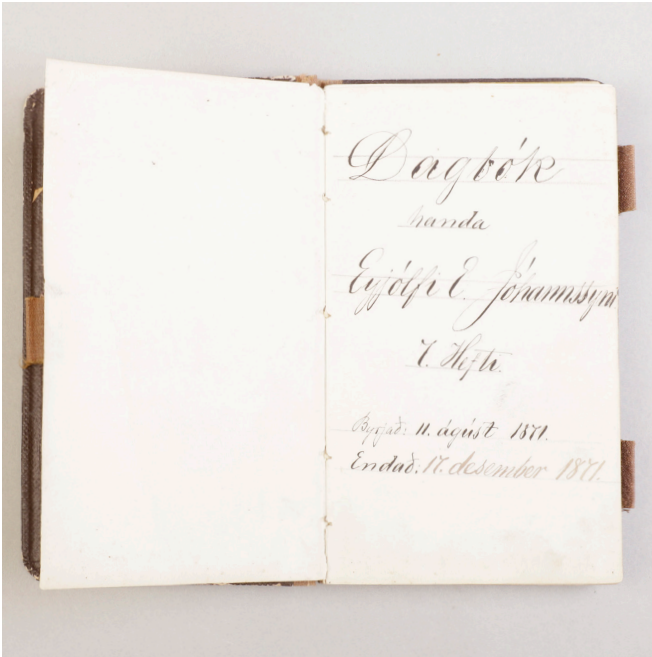 Dagbók
handa
Eyjólfi E. Jóhannssyni
7. Hefti.
Byrjað: 11. ágúst 1871.
Endað: 17. desember 1871.